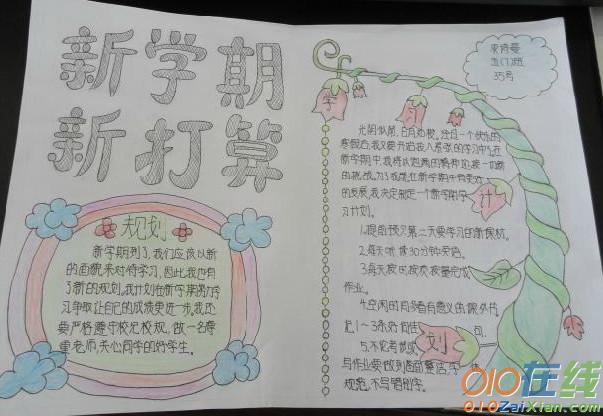 新学期
新打算
规划
新学期到了,我们应该以新
的面貌来对待学习,因此,我也有
了新的规划。我计划在新学期努力学
习,争取让自己的成绩更进一步。我还
要严格遵守校纪校规,做一名尊
重老师,关心同学的好学生。
五(7)班
35号
学
习
计
划
光阴似箭,日月如梭。经过一个快乐的
寒假后,我又要开始投入紧张的学习中。在
新学期中,我将以饱满的精神迎接一切新
的挑战。为了我能在新学期中有更好
的发展,我决定制定一个新学期学
习计划。
1.提前预习第二天要学习的新课材。
2.每天听读30分钟英语。
3.每天按时按质按量完成
作业。
4.空闲的时多看有意义的课外书
1~3
5.不论考试或
写作业要做到卷面整洁,字
规范,不写错别字。
010在线
010ZaiXian.com